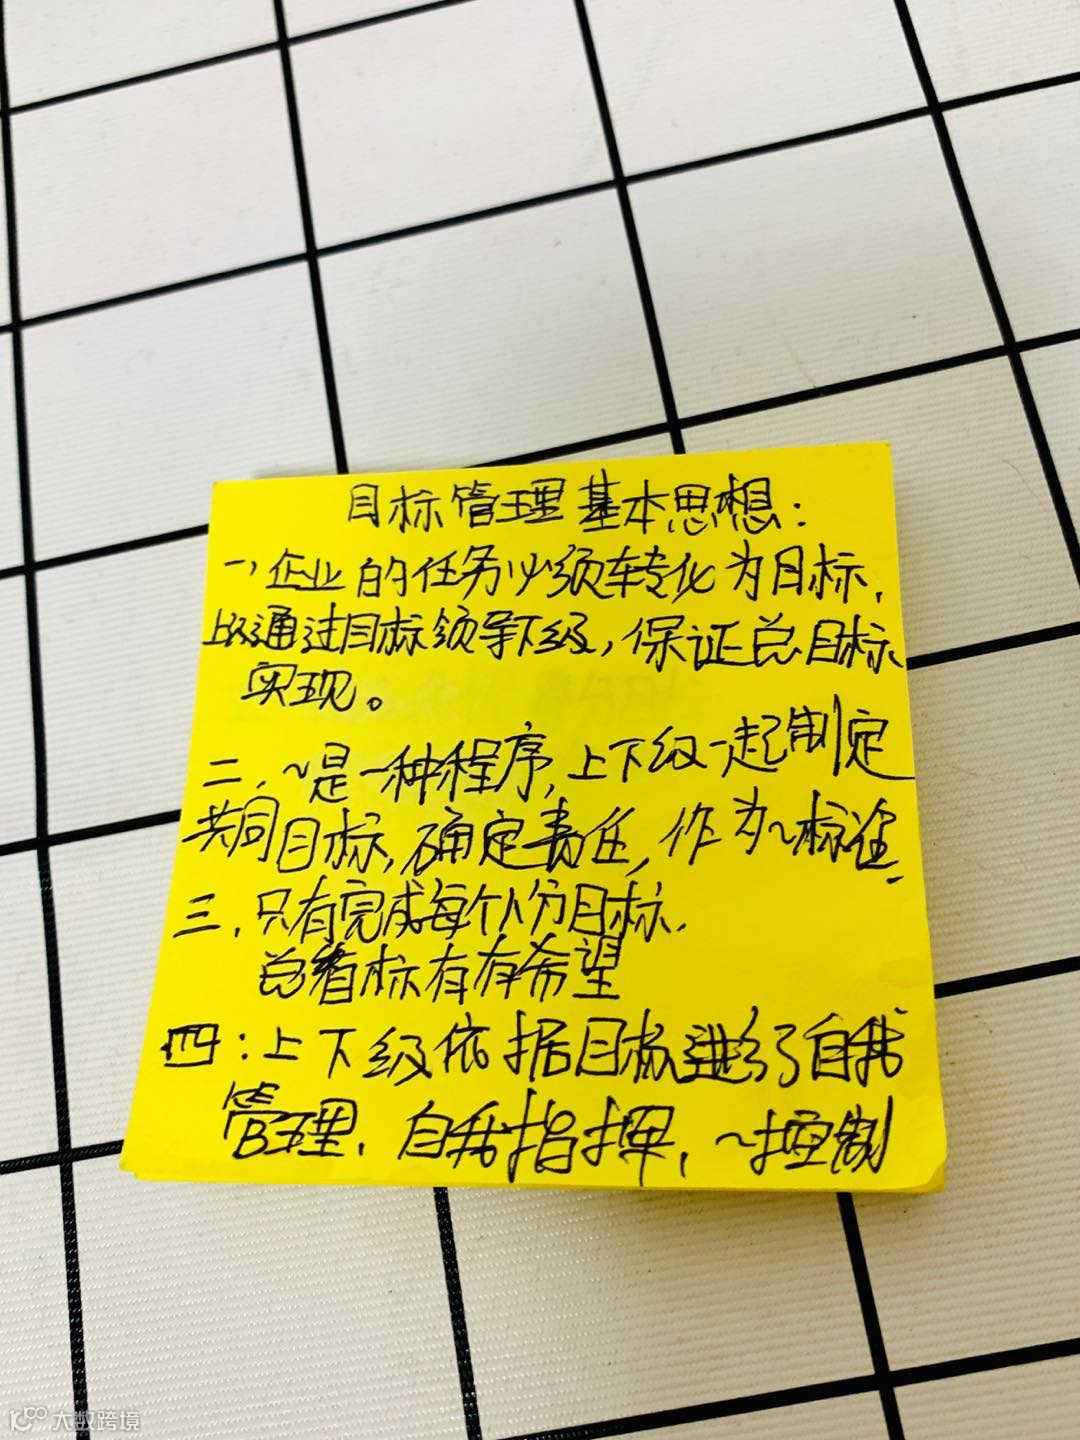 目标管理基本思想：
一、企业的任务必须转化为目标，
上级通过目标领导下级，保证总目标
实现。
二、~是一种程序，上下级一起制定
共同目标，确定责任，作为~标准，
三、只有完成每个人分目标，
总目标有有希望
四：上下级依据目标进行自我
管理，自我指挥，~控制
大数跨境